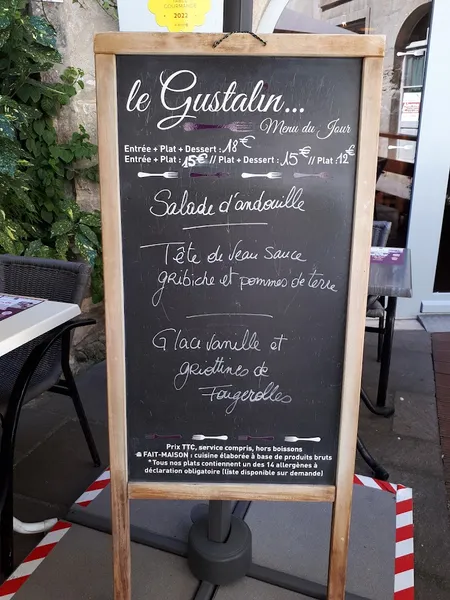 2022
le Gustalin...
Menu du Jour
Entrée + Plat + Dessert : 18€
Entrée + Plat : 15€ // Plat + Dessert : 15€ // Plat : 12€
Salade d'andouille
Tête de Veau sauce
gribiche et pommes de terre
Glace vanille et
griottines de
Fougerolles
Prix TTC, service compris, hors boissons
FAIT-MAISON : cuisine élaborée à base de produits bruts
*Tous nos plats contiennent un des 14 allergènes à
déclaration obligatoire (liste disponible sur demande)